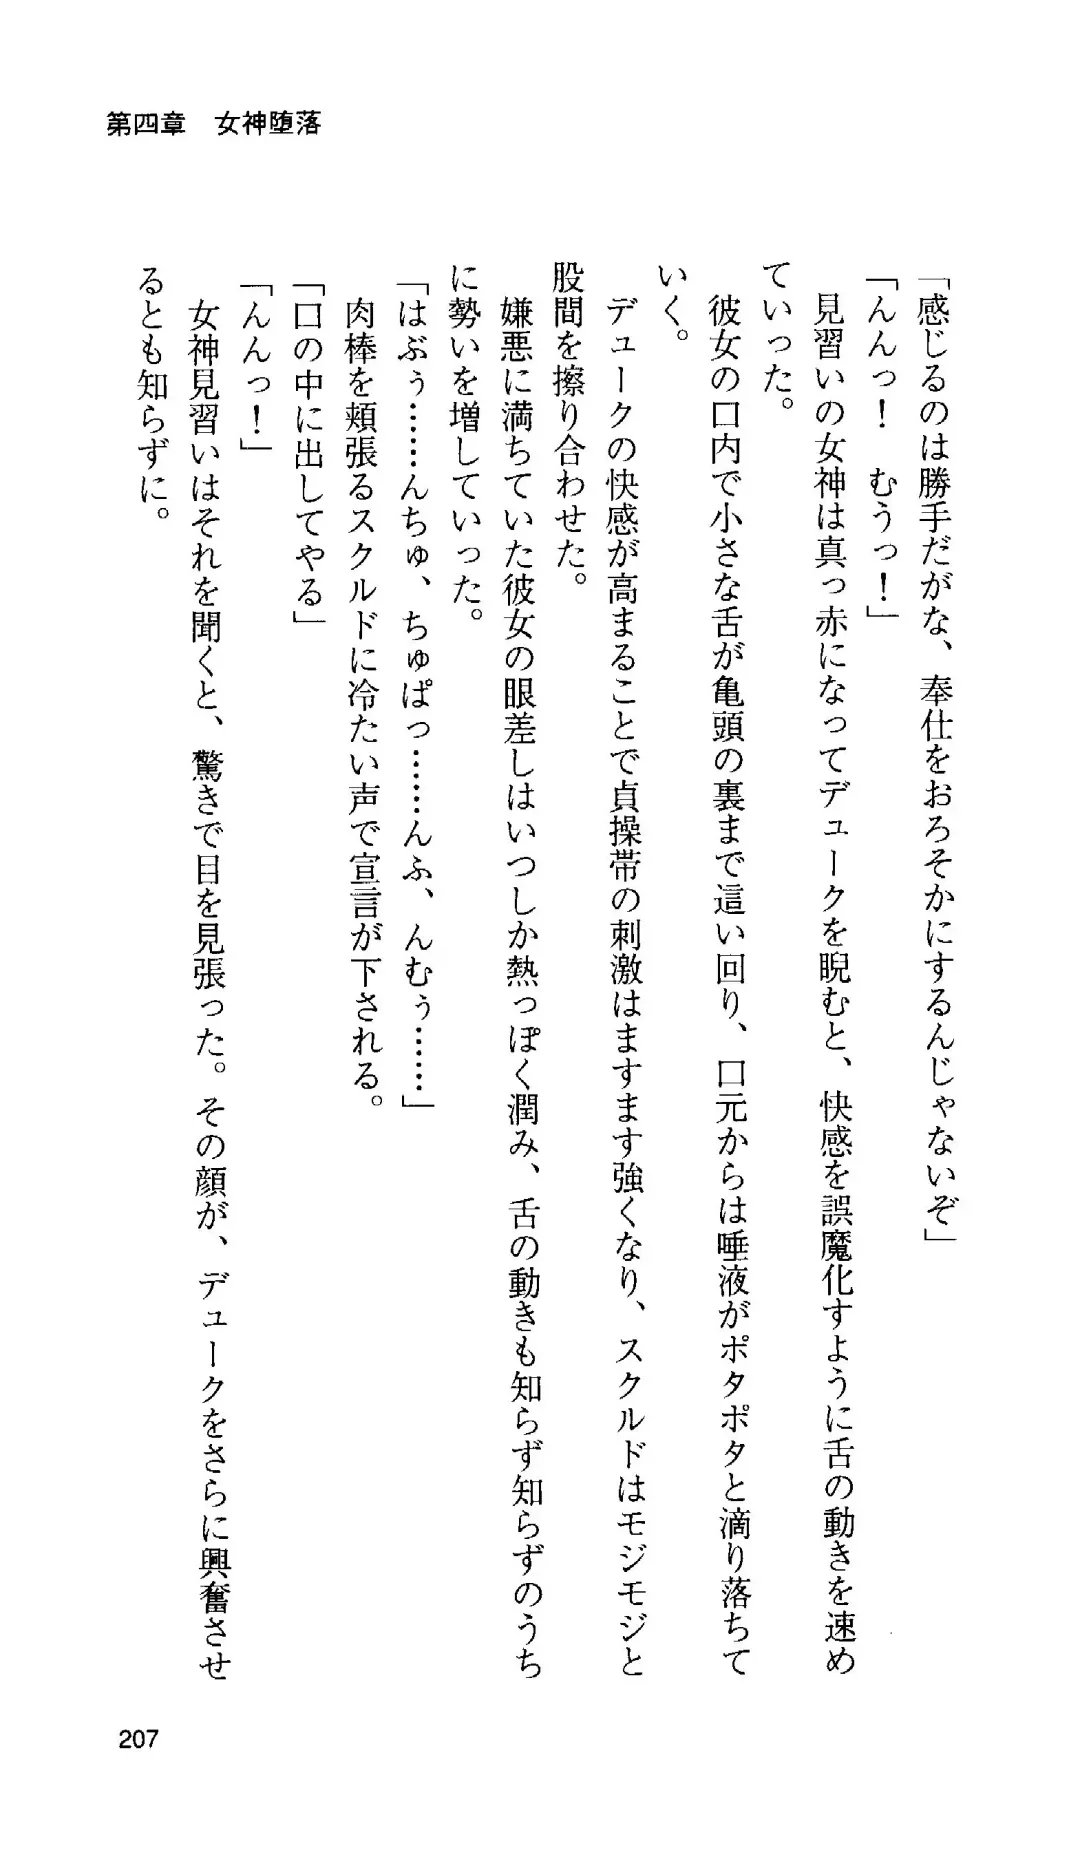 第四章　女神堕落
「感じるのは勝手だがな、奉仕をおろそかにするんじゃないぞ」
「んんっ！　むうっ！」
　見習いの女神は真っ赤になってデュークを睨むと、快感を誤魔化すように舌の動きを速め
ていった。
　彼女の口内で小さな舌が亀頭の裏まで這い回り、口元からは唾液がポタポタと滴り落ちて
いく。
　デュークの快感が高まることで貞操帯の刺激はますます強くなり、スクルドはモジモジと
股間を擦り合わせた。
　嫌悪に満ちていた彼女の眼差しはいつしか熱っぽく潤み、舌の動きも知らず知らずのうち
に勢いを増していった。
「はぶぅ……んちゅ、ちゅぱっ……んふ、んむぅ……」
　肉棒を頬張るスクルドに冷たい声で宣言が下される。
「口の中に出してやる」
「んんっ！」
　女神見習いはそれを聞くと、驚きで目を見張った。その顔が、デュークをさらに興奮させ
るとも知らずに。
207